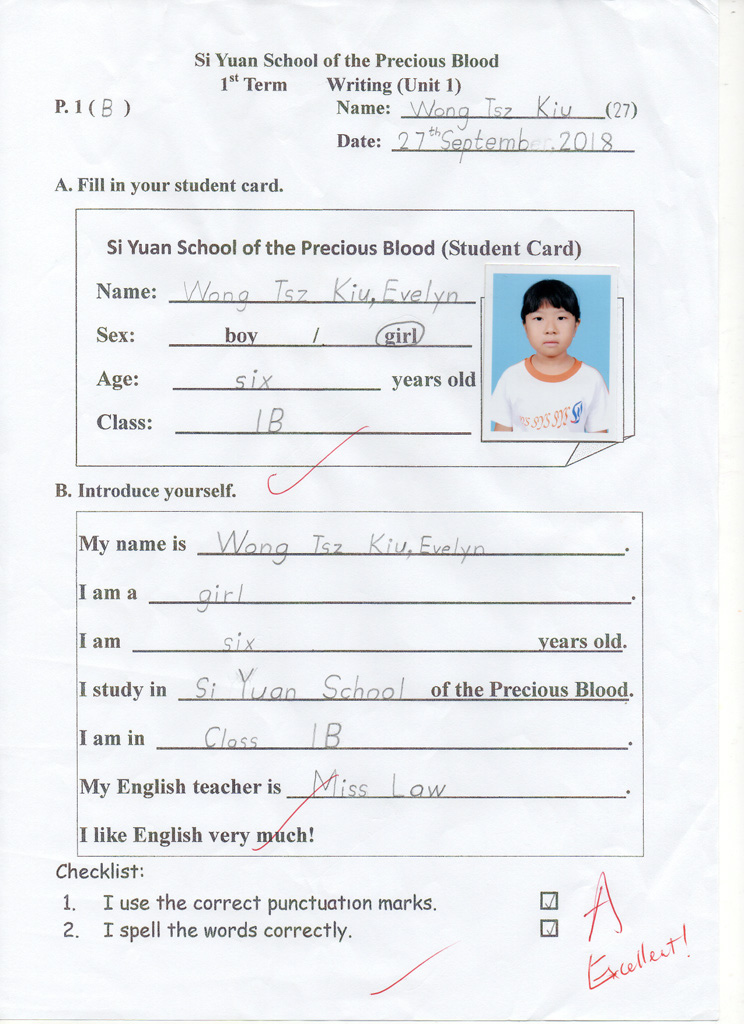 Si Yuan School of the Precious Blood
1st Term Writing (Unit 1)
P. 1 ( B ) Name: Wong Tsz Kiu (27)
Date: 27th September, 2018
A. Fill in your student card.
Si Yuan School of the Precious Blood (Student Card)
Name: Wong Tsz Kiu, Evelyn
Sex: boy / girl
Age: six years old
Class: 1B
SYS SYS SYS
B. Introduce yourself.
My name is Wong Tsz Kiu, Evelyn.
I am a girl.
I am six years old.
I study in Si Yuan School of the Precious Blood.
I am in Class 1B.
My English teacher is Miss Law.
I like English very much!
Checklist:
1. I use the correct punctuation marks.
2. I spell the words correctly.
A
Excellent!